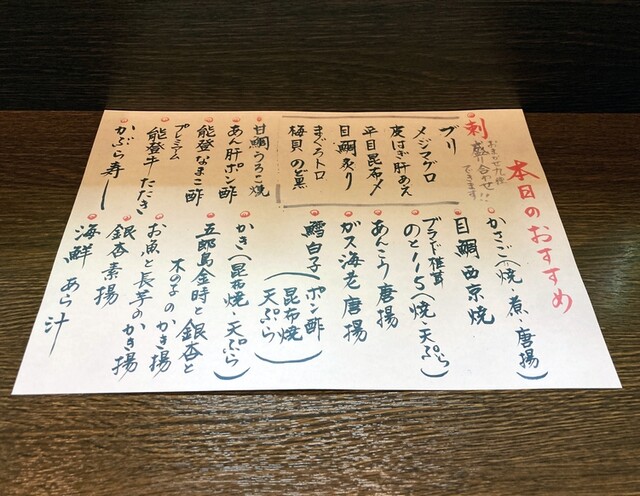 本日のおすすめ
刺
おまかせ九種
盛り合わせ!!
できます!
ブリ
メジマグロ
皮はぎ肝あえ
平目昆布〆
目鯛炙り
まぐろトロ
梅貝のど黒
甘鯛うろこ焼
あん肝ポン酢
能登なまこ酢
プレミアム
能登牛たたき
かぶら寿し
かさご(焼・煮・唐揚)
目鯛西京焼
ブランド椎茸
のと115(焼・天ぷら)
あんこう唐揚
ガス海老唐揚
鱈白子(ポン酢
昆布焼
天ぷら)
かき(昆布焼・天ぷら)
五郎島金時と銀杏と
木の子のかき揚
お魚と長芋のかき揚
銀杏素揚
海鮮あら汁